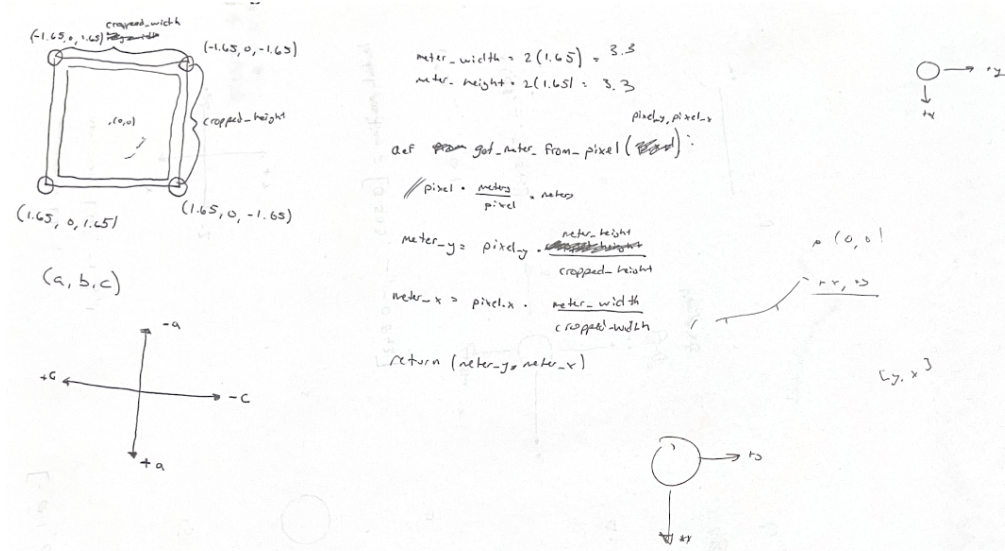 cropped_width
(-1.65, 0, 1.65)
(-1.65, 0, -1.65)
.(0,0)
cropped_height
(1.65, 0, 1.65)
(1.65, 0, -1.65)
(a, b, c)
-a
+c
-c
+a
meter_width = 2(1.65) = 3.3
meter_height = 2(1.65) = 3.3
pixel_y, pixel_x
def get_meter_from_pixel( ):
// pixel · meters/pixel = meters
meter_y = pixel_y · meter_height
cropped_height
meter_x = pixel_x · meter_width
cropped_width
return (meter_y, meter_x)
+y
+x
(0,0)
[y, x]
+y
+x